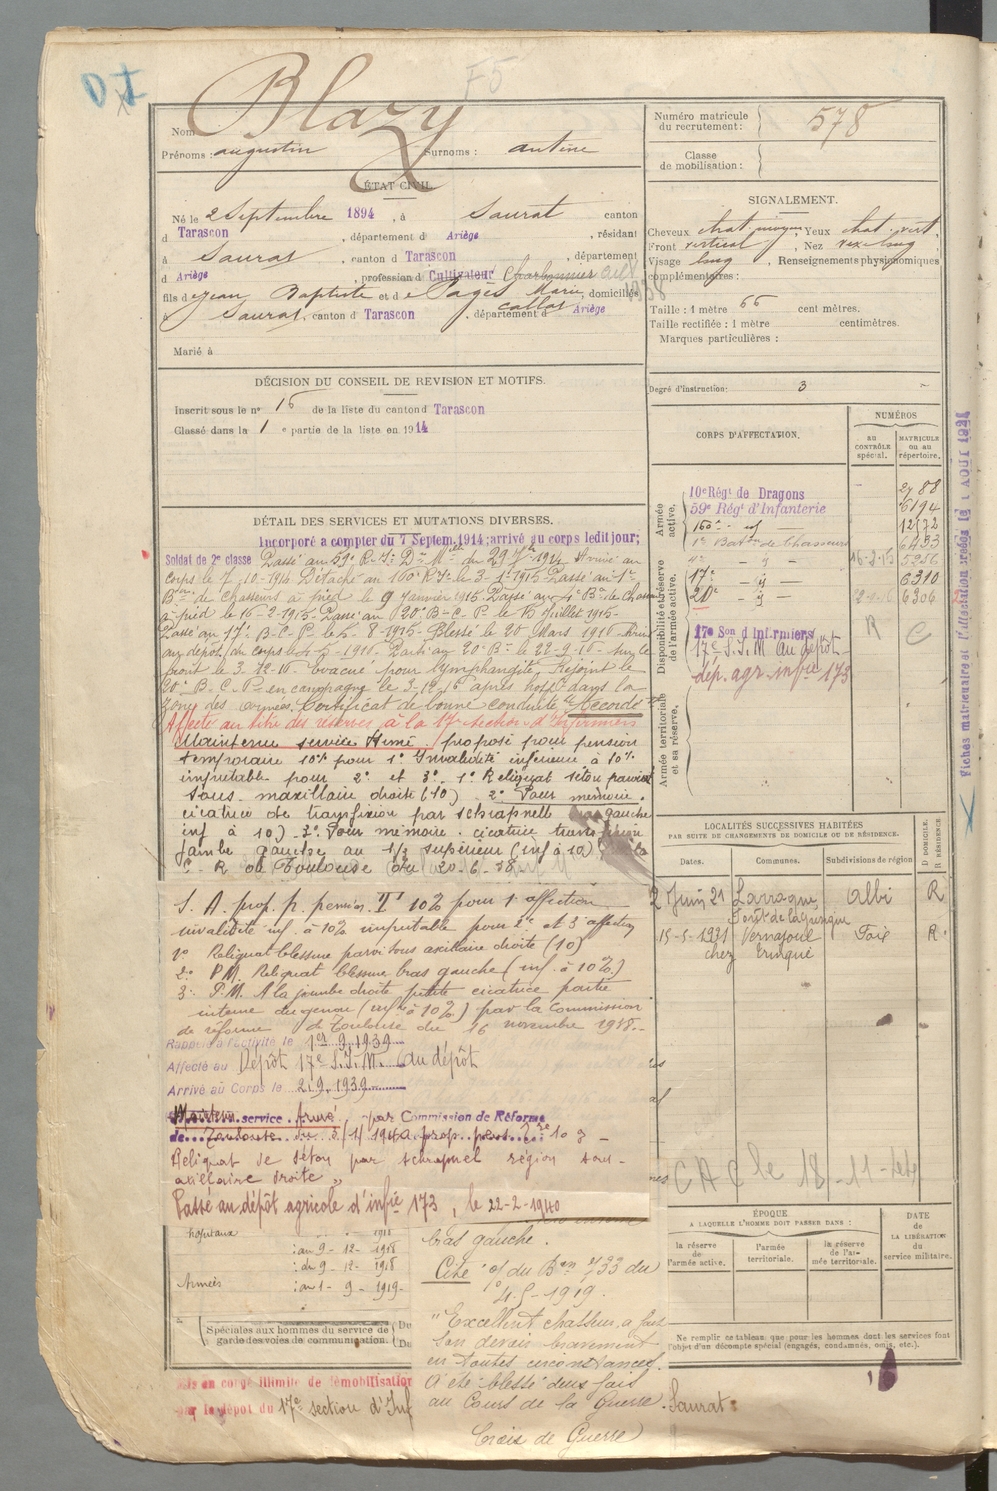 D I
F5
Nom Blazy
Prénoms : augustin Surnoms : antoine
ÉTAT CIVIL
Né le 2 Septembre 1894, à Saurat canton
d Tarascon, département d Ariège, résidant
à Saurat, canton d Tarascon, département
d Ariège, profession d Cultivateur Charbonnier
1938
fils de Jean Baptiste et de Pagès Marie, domiciliés
callat
à Saurat, canton d Tarascon, département d Ariège
Marié à
DÉCISION DU CONSEIL DE REVISION ET MOTIFS.
Inscrit sous le n° 16 de la liste du canton d Tarascon
Classé dans la 1 e partie de la liste en 1914
DÉTAIL DES SERVICES ET MUTATIONS DIVERSES.
Incorporé a compter du 7 Septem. 1914; arrivé au corps ledit jour;
Soldat de 2e classe Passé au 59e R. I. Don Mlle du 29 7bre 1914 Arrivé au
corps le 7-10-1914 Détaché au 160e R.I. le 3-1-1915 Passé au 1er
Bon de chasseurs à pied le 9 janvier 1915. Passé au 4e Bon de Chasseurs
à pied le 16-2-1915 Passé au 20e B-C-P- le 15 Juillet 1915-
Passé au 17e B-C-P le 5-8-1915- Blessé le 20 Mars 1916
au dépôt du corps le 4-5-1916- Parti au 20e Bon le 22-9-16- sur le
front le 3-12-16- Evacué pour lymphangite. Rejoint le
20e B.C.P. en campagne le 3-12-16 après hospon dans la
zone des armées. Certificat de bonne conduite "Accordé"
Affecté au titre des réserves, à la 17e Section d'Infirmiers
Maintenu service Armé, proposé pour pension
temporaire 10% pour 1° Invalidité inférieure à 10%
imputable pour 2° et 3°. 1° Reliquat séton paroi
sous-maxillaire droite (10) - 2° Pour mémoire.
cicatrice de transfixion par schrapnell bras gauche
inf à 10) - 3° Pour mémoire. cicatrice transfixion
jambe gauche au 1/3 supérieur (inf à 10)
C-R de Toulouse du 20-6-38
S. A. prop. p. pension T 10% pour 1 affection
invalidité inf. à 10% imputable pour 2e et 3 affection
1° Reliquat blessure paroi sous axillaire droite (10)
2° P.M. Reliquat blessure bras gauche (inf. à 10%)
3° P.M. A la jambe droite petite cicatrice partie
interne du genou (inf à 10%) par la Commission
de réforme d Toulouse du 16 novembre 1918.-
Rappelé à l'activité le 1er 9. 1939
Affecté au Dépôt 17e S.I.M. (du dépôt
Arrivé au Corps le 2.9.1939
Maintenu service Armé, par Commission de Réforme
de Toulouse du 3/1/1940 prop. pens. 10%
Reliquat de séton par schrapnel région sous-
axillaire droite "
Passé au dépôt agricole d'infie 173, le 22-2-1940
hôpitaux 1918
: au 9-12-1918
: du 9-12-1918
Armées : au 1-9-1919-
bras gauche.
Cité o/ du Bon n° 733 du
4-5-1919.
"Excellent chasseur, a fait
son devoir bravement
en toutes circonstances.
A été blessé deux fois
au cours de la Guerre.
Croix de Guerre
Spéciales aux hommes du service de
garde des voies de communication.
Du
Du
Mis en congé illimité de démobilisation
par le dépôt du 17e section d'Inf
Saurat
Numéro matricule
du recrutement : 578
Classe
de mobilisation :
SIGNALEMENT.
Cheveux chat moyen, Yeux chat. vert.
Front vertical, Nez long
Visage long, Renseignements physionomiques
complémentaires :
Taille : 1 mètre 66 centimètres.
Taille rectifiée : 1 mètre centimètres.
Marques particulières :
Degré d'instruction : 3
CORPS D'AFFECTATION.
NUMÉROS
au
CONTRÔLE
spécial.
MATRICULE
ou au
répertoire.
Armée
active.
10e Régt de Dragons 2788
59e Régt d'Infanterie 6194
160e - id - 12572
1er Baton de Chasseurs 6433
4e - id - 16-2-15 5256
17e - id - 6310
20e - id - 6306
Disponibilité et réserve
de l'armée active.
17e Son d'Infirmiers R C
17e S.I.M au dépôt
dép. agr. infie 173
Armée territoriale
et sa réserve.
Fiches matriculaire et d'affectation
LOCALITÉS SUCCESSIVES HABITÉES
PAR SUITE DE CHANGEMENTS DE DOMICILE OU DE RÉSIDENCE.
Dates.
Communes.
Subdivisions de région
D DOMICILE.
R RÉSIDENCE
2 Juin 21 Larroque Albi R
Forêt de la Gresigne
15-5-1931 Vernajoul Foix R
chez
CAC le 18-11-44
ÉPOQUE
A LAQUELLE L'HOMME DOIT PASSER DANS :
la réserve
de l'armée active.
l'armée
territoriale.
la réserve
de l'armée territoriale.
DATE
de
LA LIBÉRATION
du
service militaire.
Ne remplir ce tableau que pour les hommes dont les services font
l'objet d'un décompte spécial (engagés, condamnés, omis, etc.).